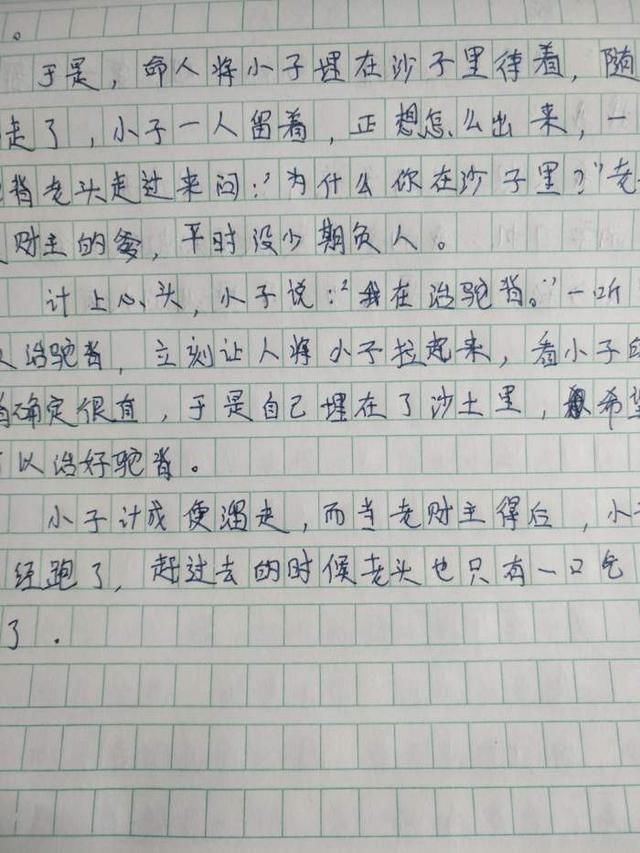 。
于是，命人将小子埋在沙子里待着，随
走了，小子一人留着，正想怎么出来，一
背老头走过来问：“为什么你在沙子里？”老
财主的爹，平时没少期负人。
计上心头，小子说：“我在治驼背。”一听
治驼背，立刻让人将小子拉起来，看小子的
背确定很直，于是自己埋在了沙土里，希望
以治好驼背。
小子计成便溜走，而当老财主得后，小子
经跑了，赶过去的时候老头也只有一口气
了．